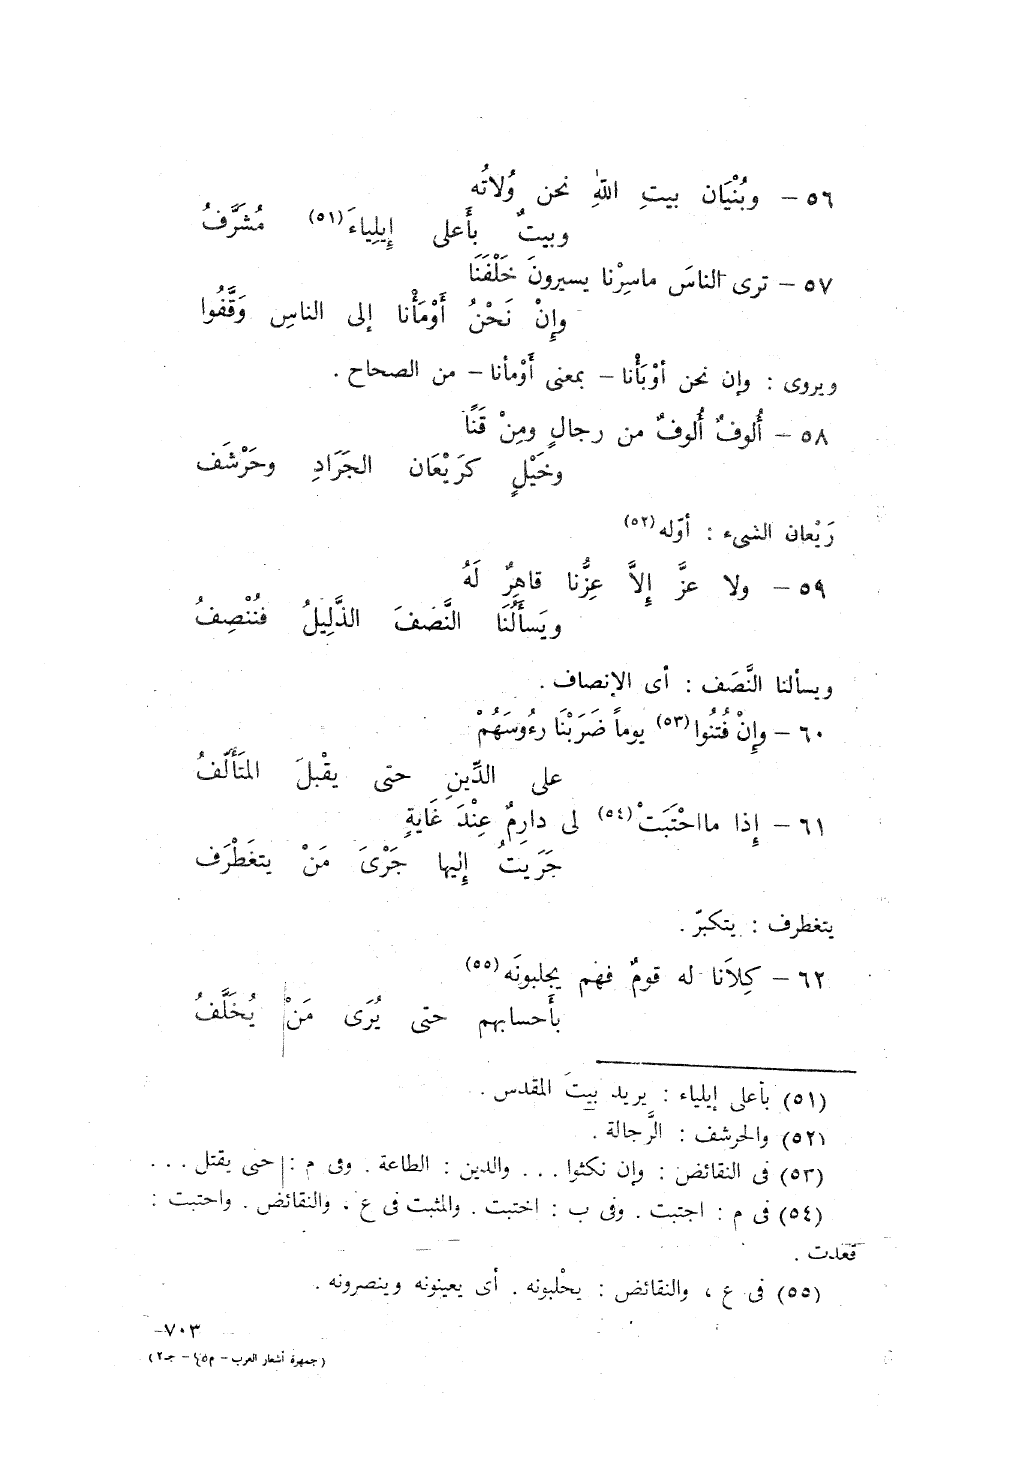 ٥٦ – وبُنْيَان بيتِ اللهِ نحن وُلاتُه
وبيتٌ بأَعلى إِيلِياءَ(٥١) مُشَرَّفُ
٥٧ – ترى الناسَ ماسِرْنا يسيرونَ خَلْفَنَا
وإِنْ نَحْنُ أَوْمَأْنا إلى الناسِ وَقَّفُوا
ويروى : وإن نحن أوْبَأْنا – بمعنى أَوْمأنا – من الصحاح .
٥٨ – أُلوفٌ أُلوفٌ من رجالٍ ومِنْ قَنًا
وخَيْلٍ كرَيْعَان الجَرَادِ وحَرْشَف
رَيْعان الشىء : أوّله(٥٢)
٥٩ – ولا عزَّ إِلاَّ عِزُّنا قاهِرٌ لَهُ
ويَسأَلُنَا النَّصَفَ الذَّلِيلُ فنُنْصِفُ
ويسألنا النَّصَف : أى الإنصاف .
٦٠ – وإِنْ فُتنُوا(٥٣) يوماً ضَرَبْنَا رءُوسَهُمْ
على الدِّينِ حتى يقْبلَ المتَأَلَّفُ
٦١ – إِذا مااحْتَبَتْ(٥٤) لى دارِمٌ عِنْدَ غَايةٍ
جَرَيتُ إِليها جَرْىَ مَنْ يتغَطْرَف
يتغطرف : يتكبرّ .
٦٢ – كِلاَنا له قومٌ فهم يجلبونَه(٥٥)
بأَحسابهم حتى يُرَى مَنْ يُخَلَّفُ
(٥١) بأعلى إيلياء : يريد بيتَ المقدس .
(٥٢) والحرشف : الرَّجالة .
(٥٣) فى النقائض : وإن نكثوا . . . والدين : الطاعة . وفى م : حتى يقتل . . .
(٥٤) فى م : اجتبت . وفى ب : اختبت . والمثبت فى ع ، والنقائض . واحتبت :
قعدت .
(٥٥) فى ع ، والنقائض : يحْلبونه . أى يعينونه وينصرونه .
٧٠٣–
(جمهرة أشعار العرب – م٤٥ – جـ٢)